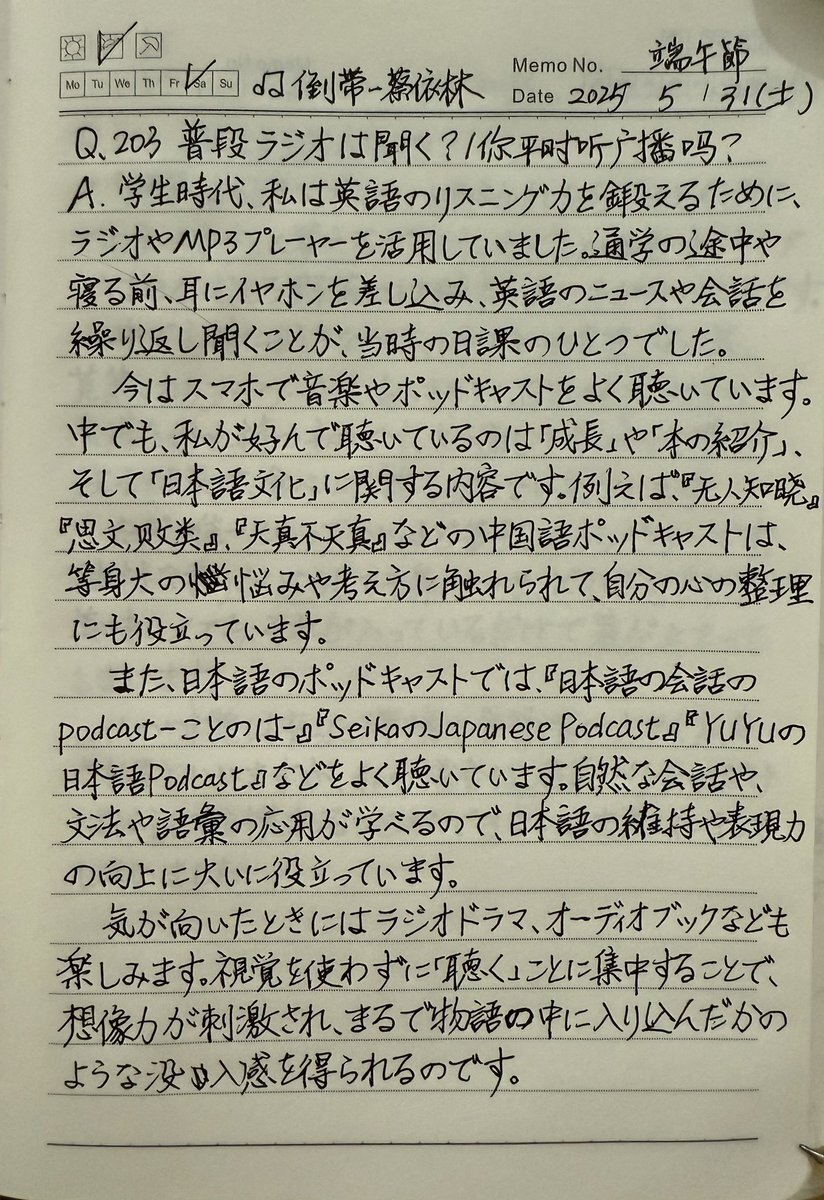 Mo Tu We Th Fr Sa Su
♫ 倒带-蔡依林
Memo No. 端午節
Date 2025 5 / 31(土)
Q.203 普段ラジオは聞く?/你平时听广播吗?
A. 学生時代、私は英語のリスニング力を鍛えるために、
ラジオやMP3プレーヤーを活用していました。通学の途中や
寝る前、耳にイヤホンを差し込み、英語のニュースや会話を
繰り返し聞くことが、当時の日課のひとつでした。
今はスマホで音楽やポッドキャストをよく聴いています。
中でも、私が好んで聴いているのは「成長」や「本の紹介」、
そして「日本語文化」に関する内容です。例えば、『无人知晓』
『思文,败类』、『天真不天真』などの中国語ポッドキャストは、
等身大の悩みや考え方に触れられて、自分の心の整理
にも役立っています。
また、日本語のポッドキャストでは、『日本語の会話の
podcast-ことのは-』『SeikaのJapanese Podcast』『YUYUの
日本語Podcast』などをよく聴いています。自然な会話や、
文法や語彙の応用が学べるので、日本語の維持や表現力
の向上に大いに役立っています。
気が向いたときにはラジオドラマ、オーディオブックなども
楽しみます。視覚を使わずに「聴く」ことに集中することで、
想像力が刺激され、まるで物語の中に入り込んだかの
ような没入感を得られるのです。